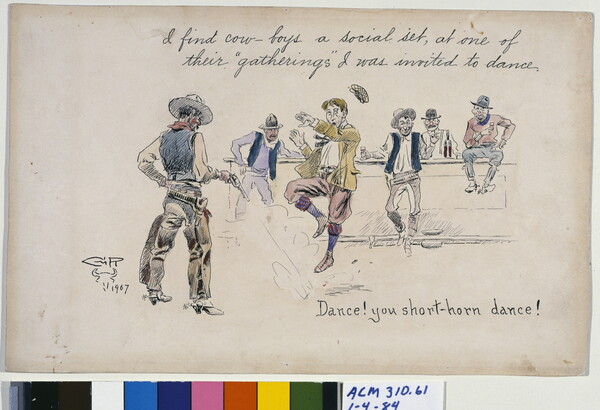 I find cow-boys a social set, at one of
their "gatherings" I was invited to dance.
CMR
1907
Dance! you short-horn dance!
ACM 310.61
1-4-84